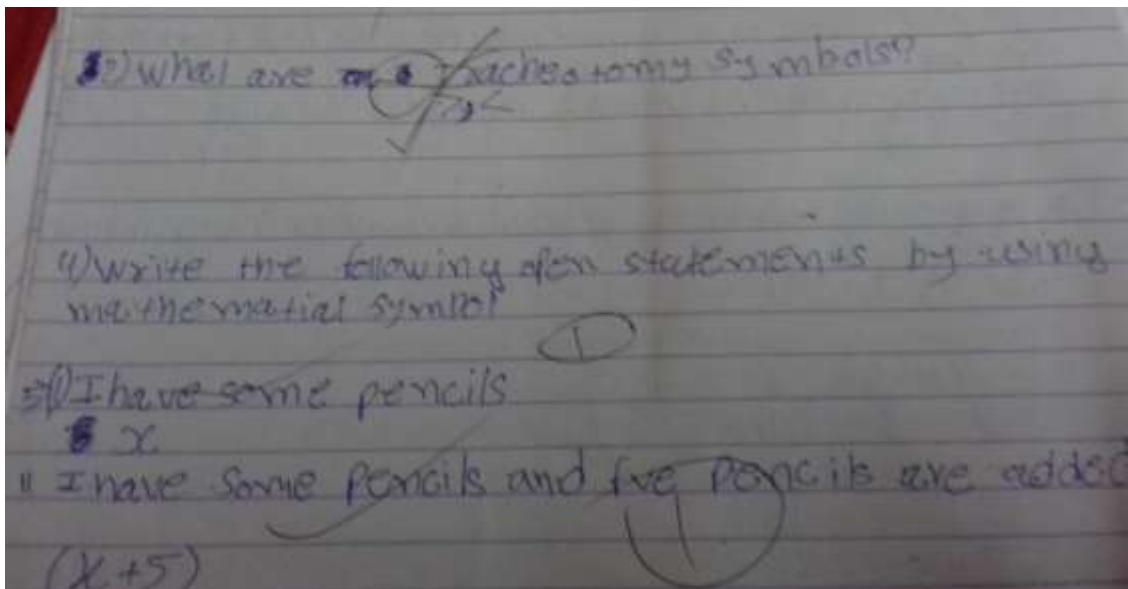 What are Tracheotomy symbols?
> <
4) Write the following open statements by using
mathematial symbol
1
5) (i) I have some pencils
x
ii I have some pencils and five pencils are added
1
(x+5)